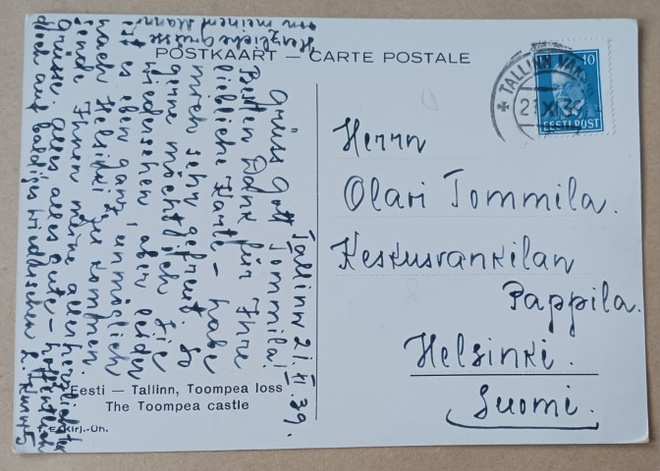 POSTKAART — CARTE POSTALE
Tallinn 21. XI. 39.
Grüss Gott Tommila!
Besten Dank für Ihre
liebliche Karte – habe
mich sehr gefreut. So
gerne möchte ich Sie
wiedersehen, aber leider
ist es eben ganz unmöglich
nach Helsinki zu kommen.
sende Ihnen meine allerherzlichsten
Grüsse. alles alles gute – hoffentlich
doch auf baldiges Wiedersehen
Herzliche Grüsse
von meinem Mann
Eesti — Tallinn, Toompea loss
The Toompea castle
Kirj.-Üh.
TALLINN VAK
21 XI 39
10
EESTI POST
Herrn
Olari Tommila.
Keskusvankilan
Pappila.
Helsinki.
Suomi.